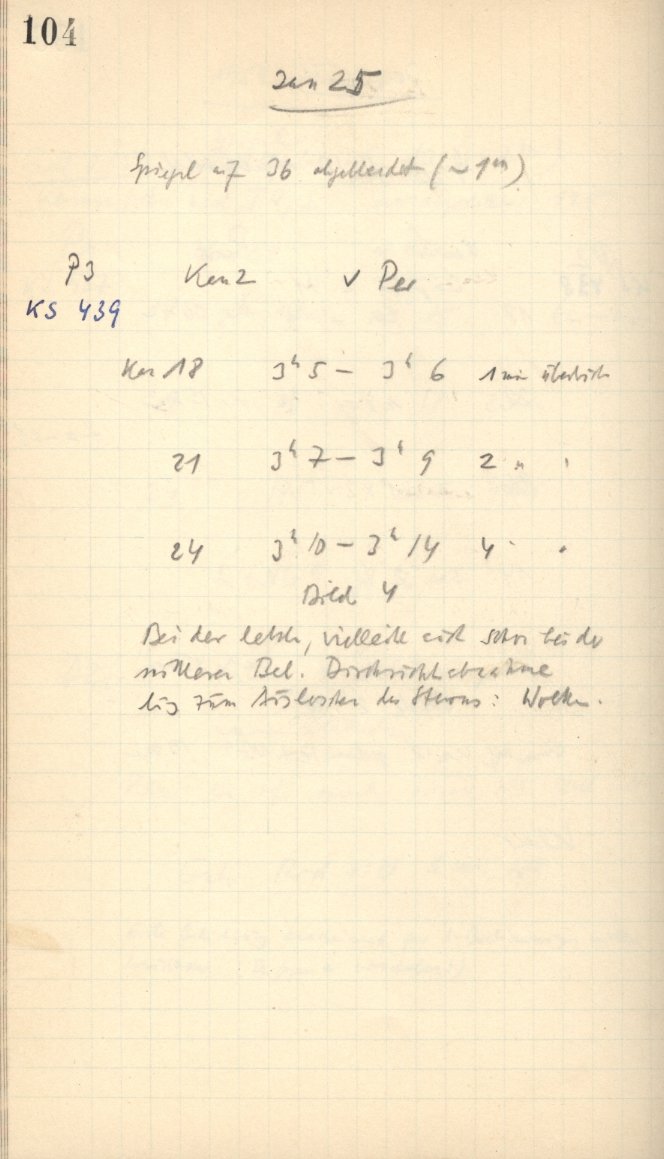 104
Jan 25
Spiegel auf 36 abgeblendet (~ 1m)
P3 Kas 2 ν Per
KS 439
Kas 18 3h 5 – 3h 6 1 min überlicht
21 3h 7 – 3h 9 2 " "
24 3h 10 – 3h 14 4 " "
Bild 4
Bei der letzten, vielleicht auch schon bei der
mittleren Bel. Durchsichtabnahme
bis zum Auslöschen des Sterns: Wolken.